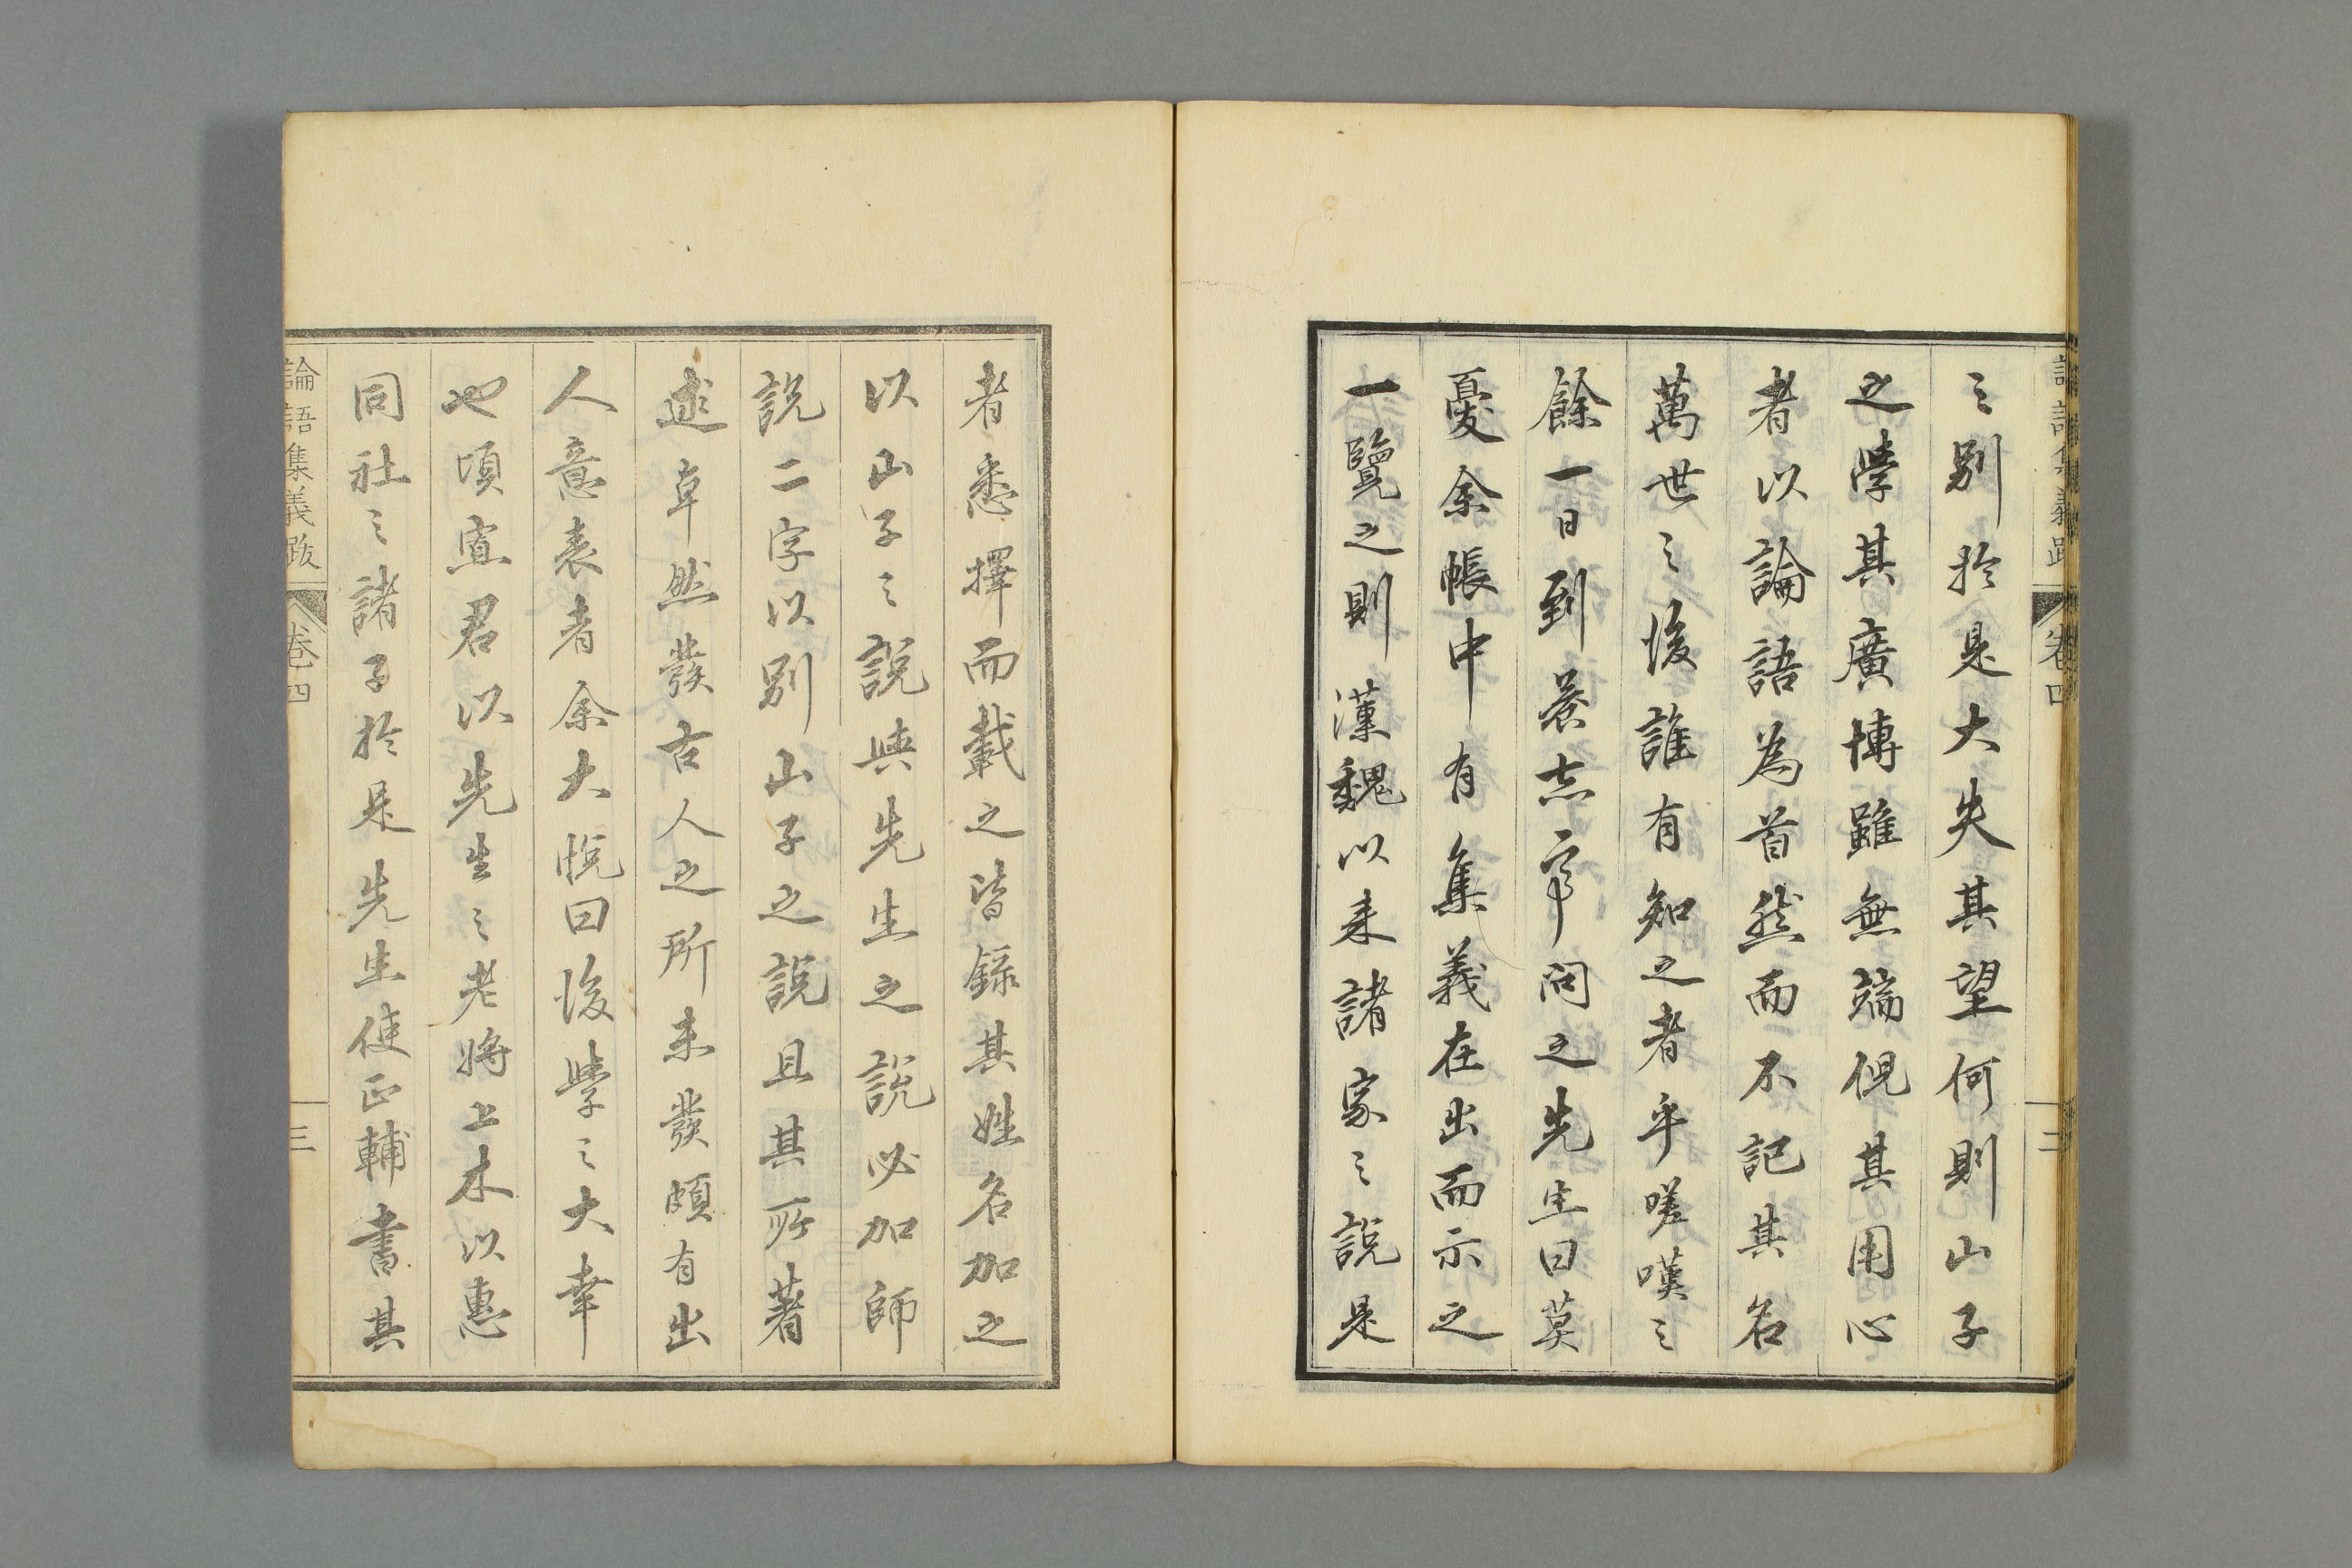 之別於是大失其望何則山子
之學其廣博雖無端倪其用心
者以論語為首然而不記其名
萬世之後誰有知之者乎嗟嘆之
餘一日到養志亭問之先生曰莫
憂余帳中有集義在出而示之
一覽之則漢魏以来諸家之說是
者悉擇而載之皆錄其姓名加之
以山子之說與先生之說必加師
說二字以別山子之說且其所著
述卓然發古人之所未發頗有出
人意表者余大悅曰後學之大幸
也頃宣君以先生之老將上木以惠
同社之諸子於是先生使正輔書其
論語集義跋 卷四 三